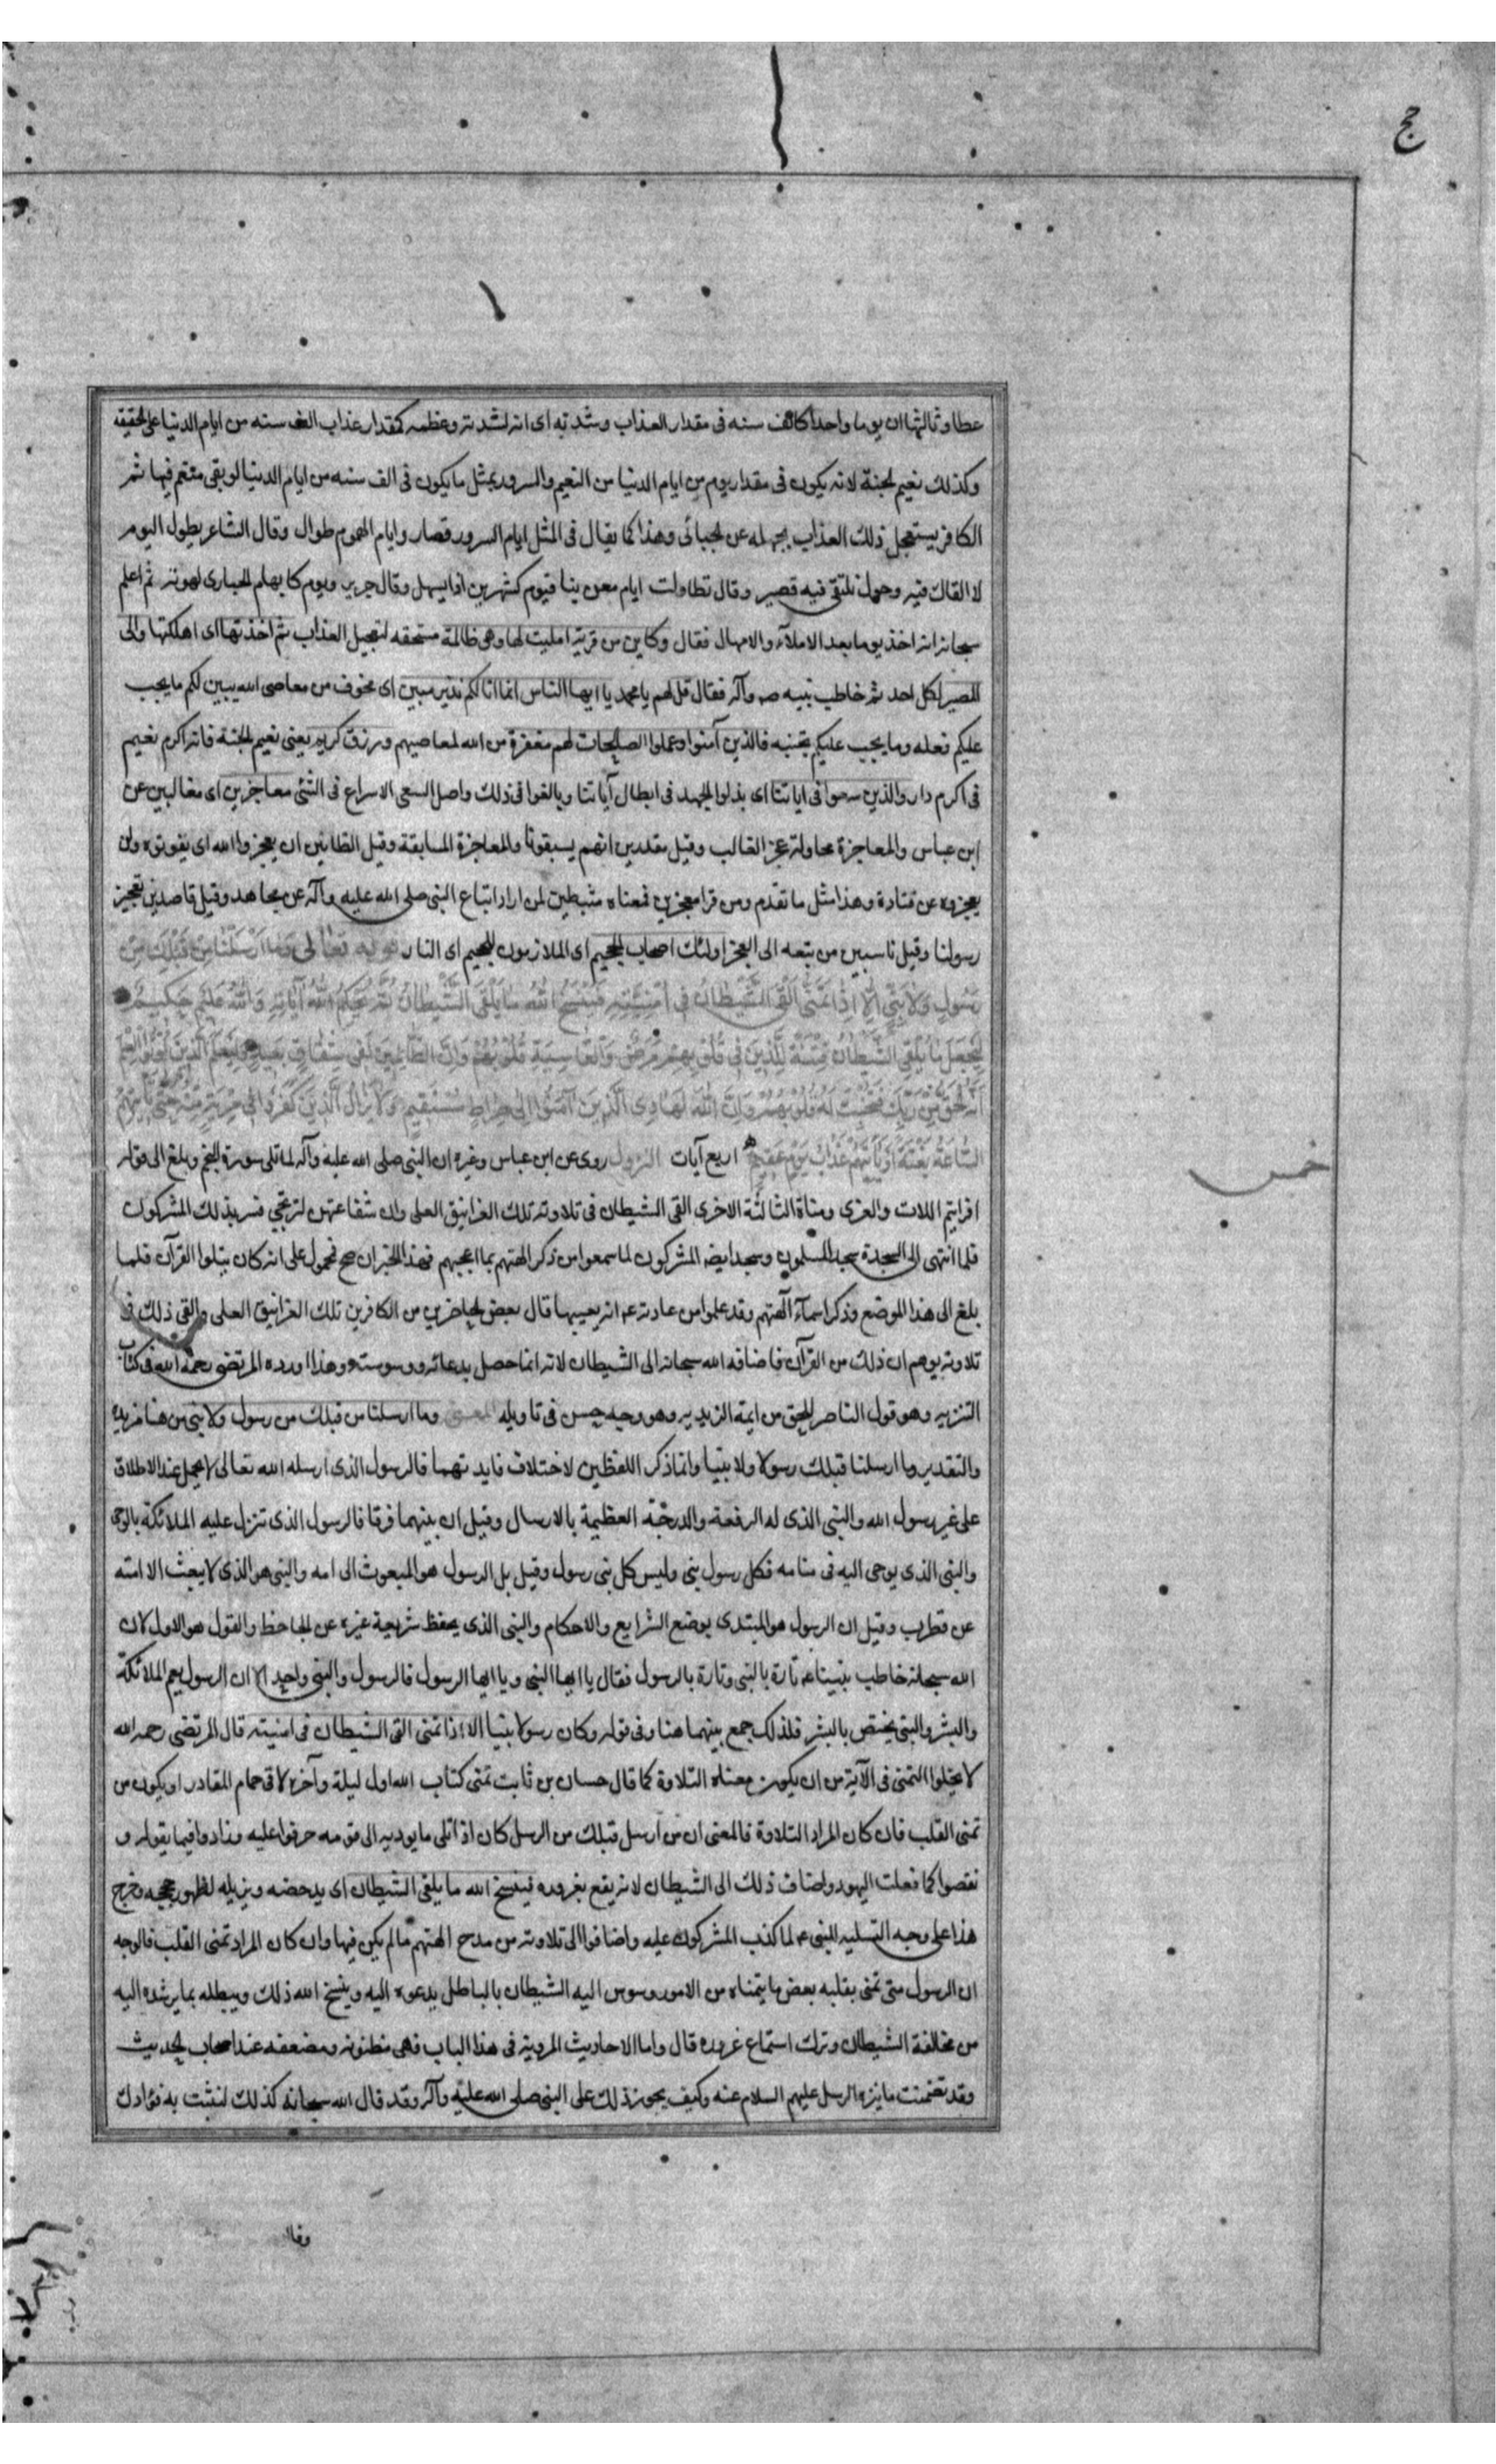 حج
عطا وثالثها ان يوما واحدا كالف سنه فى مقدار العذاب وشدته اى انه لشدته وعظمه كمقدار عذاب الف سنه من ايام الدنيا على الحقيقه
وكذلك نعيم الجنة لانه يكون فى مقدار يوم من ايام الدنيا من النعيم والسرور بمثل ما يكون فى الف سنه من ايام الدنيا لو بقى متنعم فيها ثم
الكافر يستعجل ذلك العذاب بجهله عن الجبائى وهذا كما يقال فى المثل ايام السرور قصار وايام الهموم طوال وقال الشاعر يطول اليوم
لا القاك فيه وحول نلتقى فيه قصير وقال تطاولت ايام معن بنا فيوم كشهرين اذا يستهل وقال جرير ويوم كابهام الحبارى لهوته ثم اعلم
سبحانه انه اخذ يوما بعد الاملآء والامهال فقال وكاين من قرية امليت لها وهى ظالمة مستحقه لتعجيل العذاب ثم اخذتها اى اهلكتها والى
المصير لكل احد ثم خاطب نبيه صه وآله فقال قل لهم يا محمد يا ايها الناس انما انا لكم نذير مبين اى مخوف من معاصى الله يبين لكم ما يجب
عليكم فعله وما يجب عليكم تجنبه فالذين آمنوا وعملوا الصالحات لهم مغفرة من الله لمعاصيهم ورزق كريم يعنى نعيم الجنة فانه اكرم نعيم
فى اكرم دار والذين سعوا فى اياتنا اى بذلوا الجهد فى ابطال آياتنا وبالغوا فى ذلك واصل السعى الاسراع فى الشئ معاجزين اى مغالبين عن
ابن عباس والمعاجزة محاولة عجز الغالب وقيل مقدرين انهم يسبقونا والمعاجزة المسابقة وقيل الظانين ان يعجزوا الله اى يفوتوه ولن
يعجزوه عن قتادة وهذا مثل ما تقدم ومن قرا معجزين فمعناه مثبطين لمن اراد اتباع النبى صلى الله عليه وآله عن مجاهد وقيل قاصدين تعجيز
رسولنا وقيل ناسبين من تبعه الى العجز اولئك اصحاب الجحيم اى الملازمون للجحيم اى النار قوله تعالى وما ارسلنا من قبلك من
رسول ولا نبى الا اذا تمنى القى الشيطان فى امنيته فينسخ الله ما يلقى الشيطان ثم يحكم الله آياته والله عليم حكيم
ليجعل ما يلقى الشيطان فتنة للذين فى قلوبهم مرض والقاسية قلوبهم وان الظالمين لفى شقاق بعيد وليعلم الذين اوتوا العلم
انه الحق من ربك فتخبت له قلوبهم وان الله لهادى الذين آمنوا الى صراط مستقيم ولا يزال الذين كفروا فى مرية منه حتى تاتيهم
الساعة بغتة او ياتيهم عذاب يوم عقيم اربع آيات النزول روى عن ابن عباس وغيره ان النبى صلى الله عليه وآله لما تلى سورة النجم وبلغ الى قوله
افرايتم اللات والعزى ومناة الثالثة الاخرى القى الشيطان فى تلاوته تلك الغرانيق العلى وان شفاعتهن لترتجى فسر بذلك المشركون
فلما انتهى الى السجدة سجد المسلمون وسجد ايضا المشركون لما سمعوا من ذكر الهتهم بما اعجبهم فهذا الخبر ان صح فمحمول على انه كان يتلوا القرآن فلما
بلغ الى هذا الموضع وذكر اسمآء آلهتهم وقد علموا من عادته عه انه يعيبها قال بعض الحاضرين من الكافرين تلك الغرانيق العلى والقى ذلك فى
تلاوته يوهم ان ذلك من القرآن فاضافه الله سبحانه الى الشيطان لانه انما حصل بدعائه ووسوسته وهذا اورده المرتضى رحمه الله فى كتاب
التنزيه وهو قول الناصر للحق من ايمة الزيديه وهو وجه حسن فى تاويله المعنى وما ارسلنا من قبلك من رسول ولا نبى من هنا مزيده
والتقدير وما ارسلنا قبلك رسولا ولا نبيا وانما ذكر اللفظين لاختلاف فايدتهما فالرسول الذى ارسله الله تعالى لا يحمل عند الاطلاق
على غير رسول الله والنبى الذى له الرفعة والدرجة العظيمة بالارسال وقيل ان بينهما فرقا فالرسول الذى تنزل عليه الملائكة بالوحى
والنبى الذى يوحى اليه فى منامه فكل رسول نبى وليس كل نبى رسول وقيل بل الرسول هو المبعوث الى امه والنبى هو الذى لا يبعث الا امته
عن قطرب وقيل ان الرسول هو المبتدى بوضع الشرايع والاحكام والنبى الذى يحفظ شريعة غيره عن الجاحظ والقول هو الاول لان
الله سبحانه خاطب نبينا عه تارة بالنبى وتارة بالرسول فقال يا ايها النبى ويا ايها الرسول فالرسول والنبى واحد الا ان الرسول يعم الملائكة
والبشر والنبى يختص بالبشر فلذلك جمع بينهما هنا وفى قوله وكان رسولا نبيا الا اذا تمنى القى الشيطان فى امنيته قال المرتضى رحمه الله
لا يخلوا التمنى فى الآية من ان يكون معناه التلاوة كما قال حسان بن ثابت تمنى كتاب الله اول ليلة وآخره لاقى حمام المقادر او يكون من
تمنى القلب فان كان المراد التلاوة فالمعنى ان من ارسل قبلك من الرسل كان اذا تلى ما يوديه الى قومه حرفوا عليه وزادوا فيما يقوله و
نقصوا كما فعلت اليهود واضاف ذلك الى الشيطان لانه يقع بغروره فينسخ الله ما يلقى الشيطان اى يدحضه ويزيله لظهور حججه وخرج
هذا على وجه التسليه للنبى عه لما كذب المشركون عليه واضافوا الى تلاوته من مدح الهتهم ما لم يكن فيها وان كان المراد تمنى القلب فالوجه
ان الرسول متى تمنى بقلبه بعض ما يتمناه من الامور وسوس اليه الشيطان بالباطل يدعوه اليه وينسخ الله ذلك ويبطله بما يرشده اليه
من مخالفة الشيطان وترك استماع غروره قال واما الاحاديث المروية فى هذا الباب فهى مظنونه ومضعفه عند اصحاب الحديث
وقد تضمنت ما ينزه الرسل عليهم السلام عنه وكيف يجوز ذلك على النبى صلى الله عليه وآله وقد قال الله سبحانه كذلك لنثبت به فؤادك
وقال
خمس